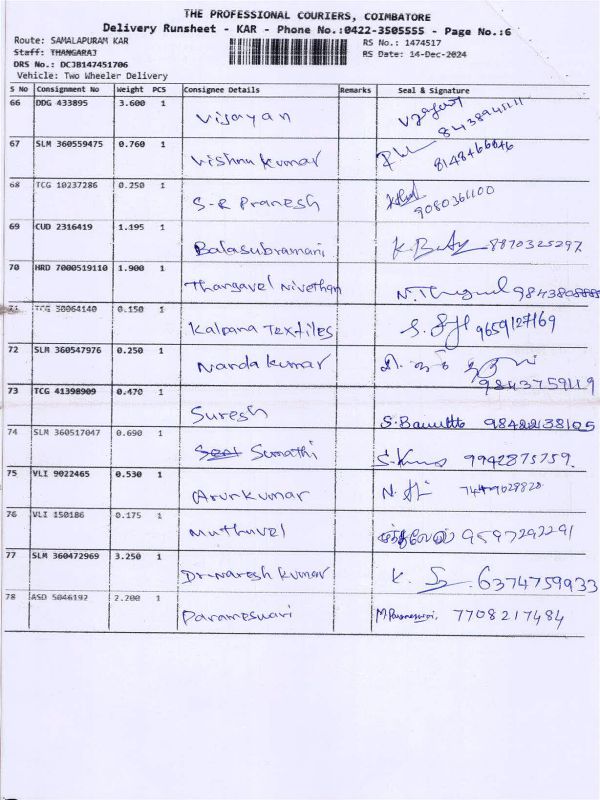 THE PROFESSIONAL COURIERS, COIMBATORE
Delivery Runsheet - KAR - Phone No.:0422-3505555 - Page No.:6
Route: SAMALAPURAM KAR RS No.: 1474517
Staff: THANGARAJ RS Date: 14-Dec-2024
DRS No.: DCJB147451706
Vehicle: Two Wheeler Delivery
S No Consignment No Weight PCS Consignee Details Remarks Seal & Signature
66 DDG 433895 3.600 1 Vijayan
67 SLM 360559475 0.760 1 Vishnu Kumar
68 TCG 10237286 0.250 1 S-R Pranesh 9080361100
69 CUD 2316419 1.195 1 Balasubramani 8870325297
70 HRD 7000519110 1.900 1 Thangavel Nivethan
71 TCG 30064140 0.150 1 Kalpana Textiles 9659127169
72 SLM 360547976 0.250 1 Nandakumar 9843759119
73 TCG 41398909 0.470 1 Suresh
74 SLM 360517047 0.690 1 Sumathi 9942875759.
75 VLI 9022465 0.530 1 Arunkumar
76 VLI 150186 0.175 1 Muthuvel 9597292291
77 SLM 360472969 3.250 1 Dr-Naresh Kumar 6374759933
78 ASD 5046192 2.200 1 Parameswari 7708217484